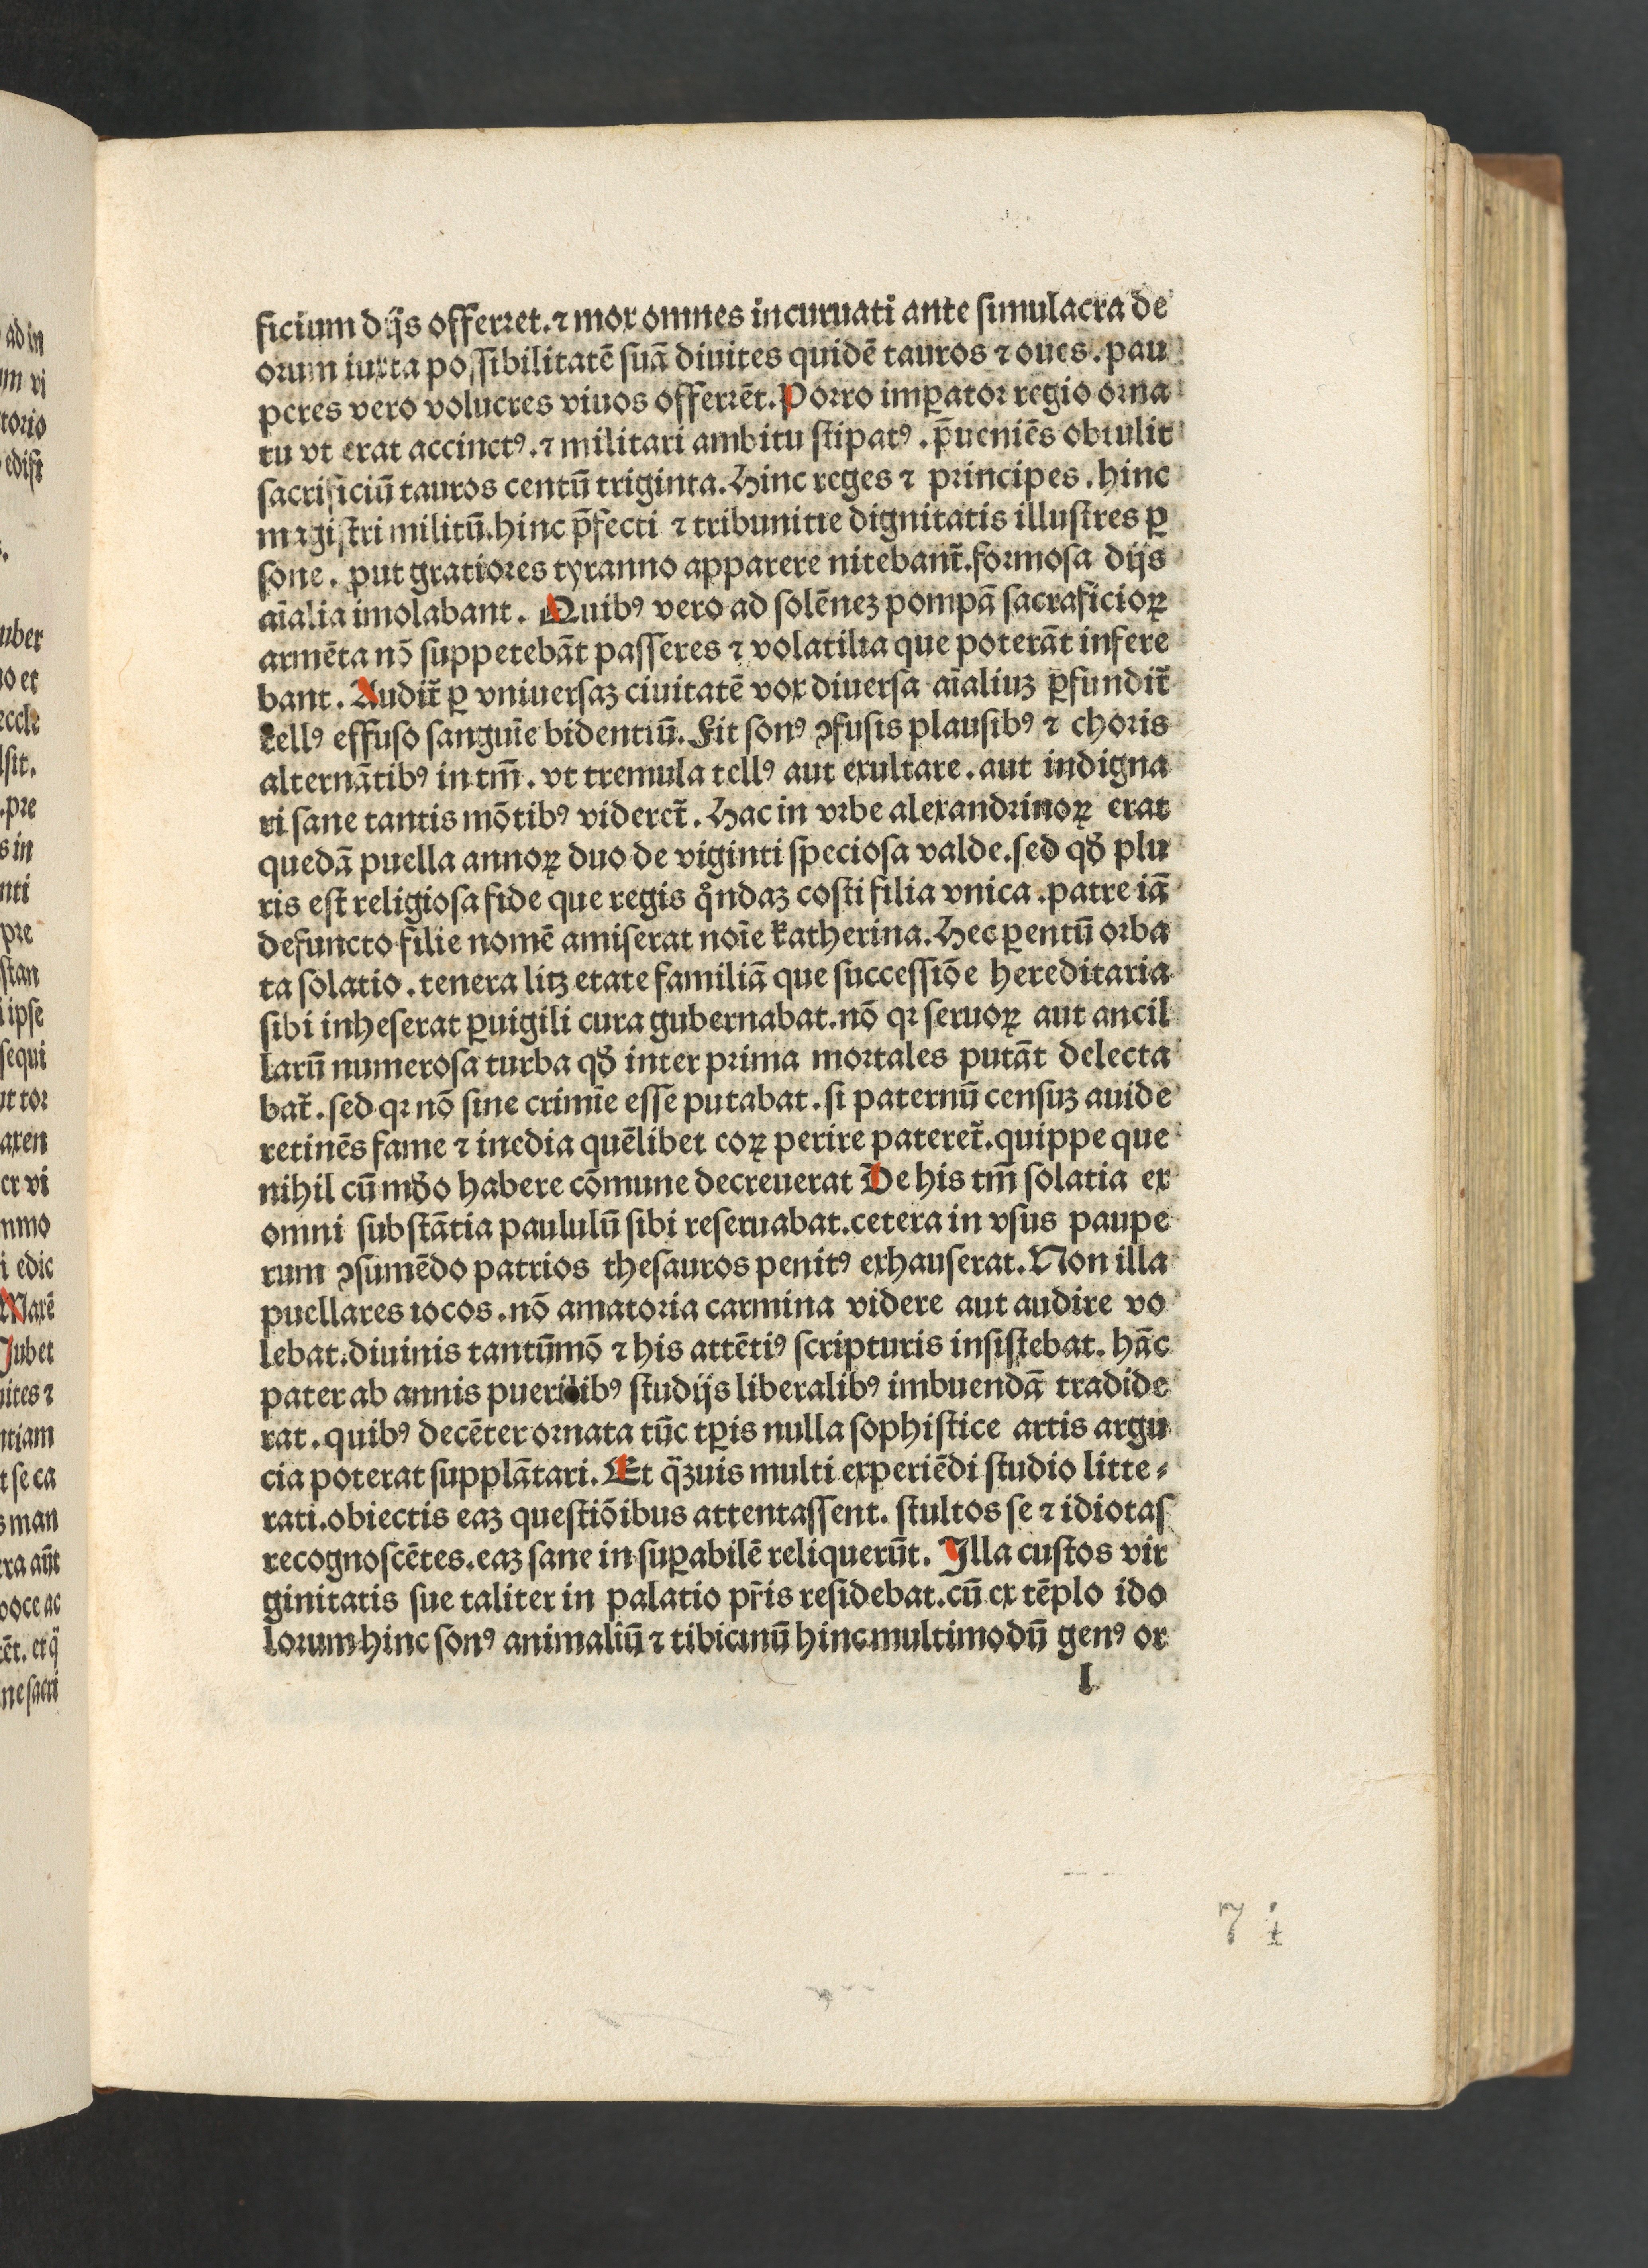 ficium dijs offerret. ⁊ mox omnes incuruati ante simulacra de
orum iuxta possibilitatē suā diuites quidē tauros ⁊ oues. pau
peres vero volucres viuos offerrēt. Porro imꝑator regio orna
tu vt erat accinctꝰ. ⁊ militari ambitu stipatꝰ. p̄ueniēs obtulit
sacrificiū tauros centū triginta. Hinc reges ⁊ principes. hinc
magistri militū. hinc p̄fecti ⁊ tribunitie dignitatis illustres ꝑ
sone. ꝓut gratiores tyranno apparere nitebant᷑. formosa dijs
aīalia imolabant. Quibꝰ vero ad solēnez pompā sacraficioꝝ
armēta nō suppetebāt passeres ⁊ volatilia que poterāt infere
bant. Audit᷑ ꝑ vniuersaz ciuitatē vox diuersa aīaliuz ꝑfundit᷑
tellꝰ effuso sanguīe bidentiū. Fit sonꝰ ꝯfusis plausibꝰ ⁊ choris
alternātibꝰ in tm̄. vt tremula tellꝰ aut exultare. aut indigna
ri sane tantis mōtibꝰ videret᷑. Hac in vrbe alexandrinoꝝ erat
quedā puella annoꝝ duo de viginti speciosa valde. sed qd̛ plu
ris est religiosa fide que regis qͦndaz costi filia vnica. patre iā
defuncto filie nomē amiserat noīe katherina. Hec ꝑentū orba
ta solatio. tenera litz etate familiā que successiōe hereditaria
sibi inheserat ꝑuigili cura gubernabat. nō qꝛ seruoꝝ aut ancil
larū numerosa turba qd̛ inter prima mortales putāt delecta
bat᷑. sed qꝛ nō sine crimīe esse putabat. si paternū censuz auide
retinēs fame ⁊ inedia quēlibet eoꝝ perire pateret᷑. quippe que
nihil cū md̛o habere cōmune decreuerat De his tm̄ solatia ex
omni substātia paululū sibi reseruabat. cetera in vsus paupe
rum ꝯsumēdo patrios thesauros penitꝰ exhauserat. Non illa
puellares iocos. nō amatoria carmina videre aut audire vo
lebat. diuinis tantūmō ⁊ his attētiꝰ scripturis insistebat. hāc
pater ab annis puerilibꝰ studijs liberalibꝰ imbuendā tradide
rat. quibꝰ decēter ornata tūc tꝑis nulla sophistice artis argu
cia poterat supplātari. Et qͣ̄zuis multi experiēdi studio litte⸗
rati. obiectis eaz questiōibus attentassent. stultos se ⁊ idiotas
recognoscētes. eaz sane insuꝑabilē reliquerūt. Illa custos vir
ginitatis sue taliter in palatio pr̄is residebat. cū ex tēplo ido
lorum hinc sonꝰ animaliū ⁊ tibicinū hinc multimodū genꝰ or
l
74
ad in
um vi
torio
edist
uber
no et
eccle
sit.
pre
s in
nti
pre
stan
ipse
sequi
ut tor
axen
er vi
nmo
i edic
Maxē
Jubet
uites ⁊
ntiam
t se ca
s man
era aūt
voce ac
ēt. et q̄
ne sacri